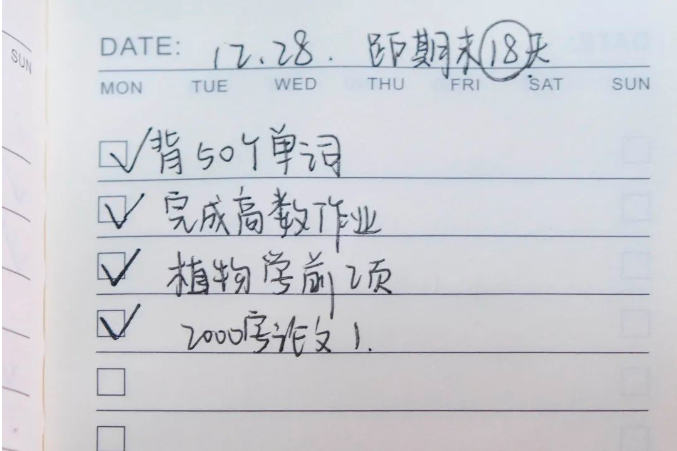 SUN
DATE: 12.28. 距期末18天
MON TUE WED THU FRI SAT SUN
背50个单词
完成高数作业
植物学前2页
2000字论文1.